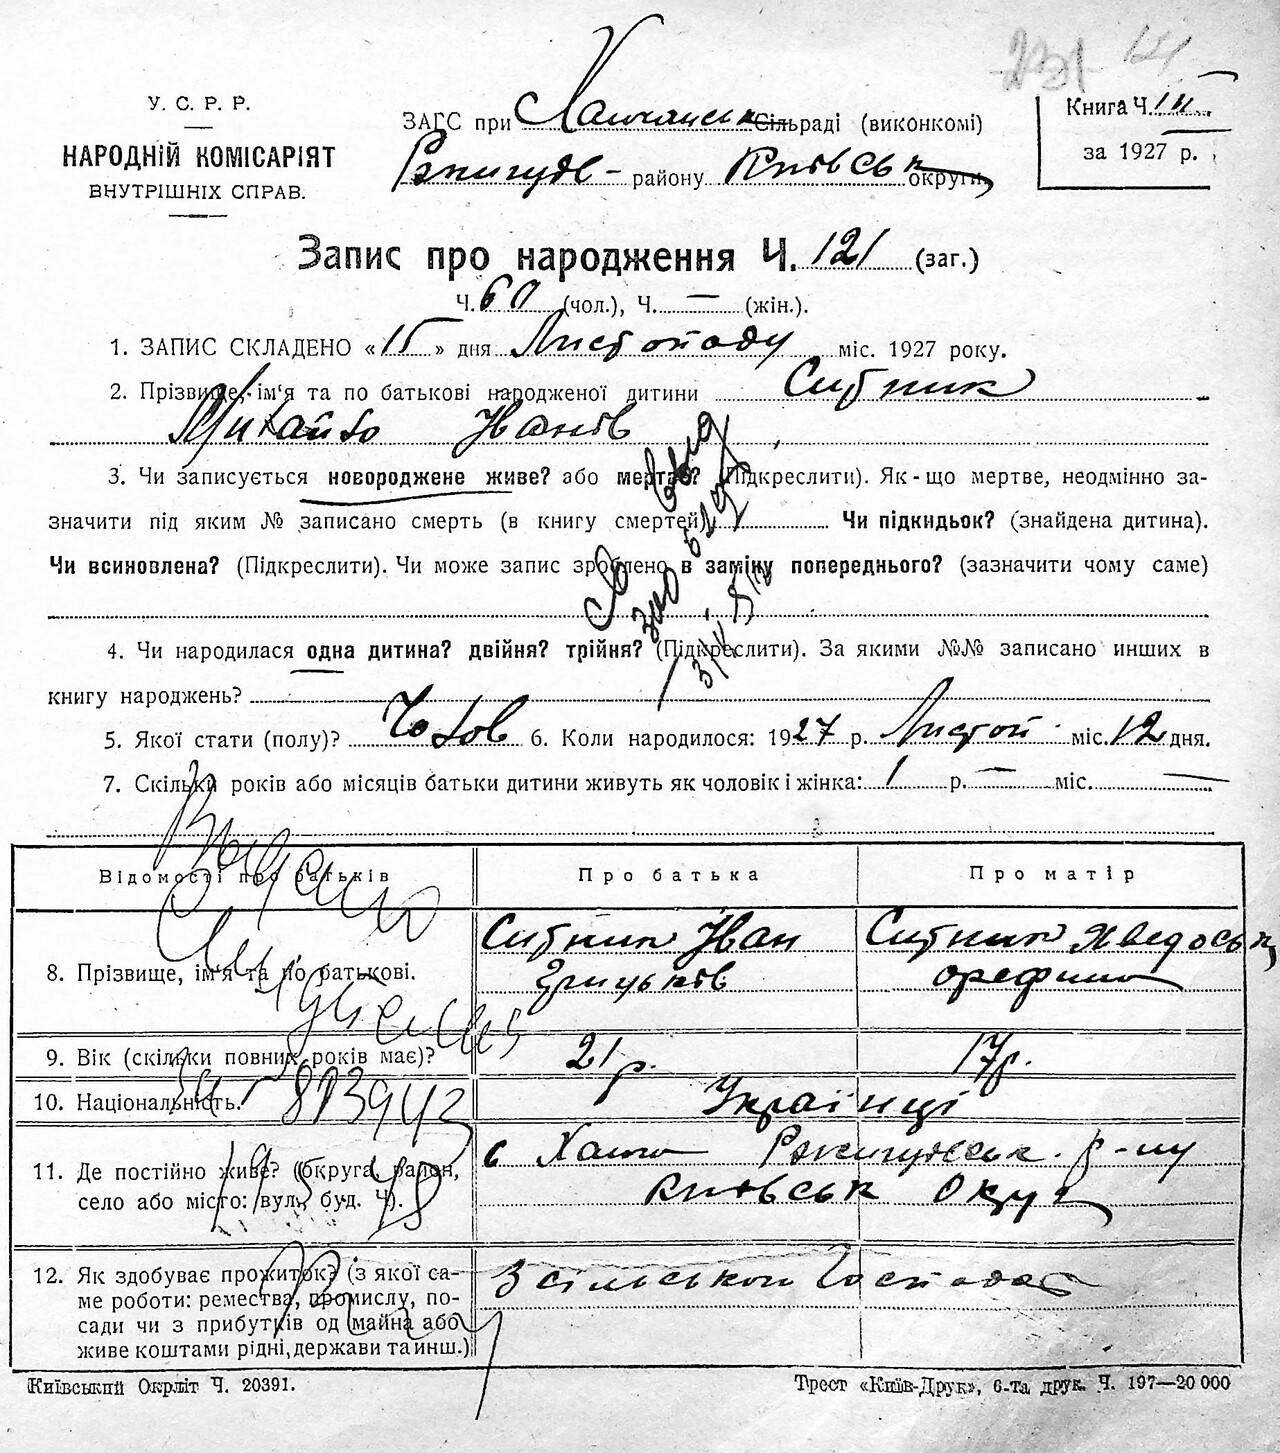 231 121
У. С. Р. Р.
НАРОДНІЙ КОМІСАРІЯТ
ВНУТРІШНІХ СПРАВ.
ЗАГС при сільраді (виконкомі)
району Київськ округи
Книга Ч.
за 1927 р.
Запис про народження Ч. 121 (заг.)
Ч. 60 (чол.), Ч. — (жін.).
1. ЗАПИС СКЛАДЕНО «15» дня Листопаду міс. 1927 року.
2. Прізвище, ім'я та по батькові народженої дитини Ситник
Михайло Іванів
3. Чи записується новороджене живе? або мертве? (Підкреслити). Як-що мертве, неодмінно за-
значити під яким № записано смерть (в книгу смертей) Чи підкидьок? (знайдена дитина).
Чи всиновлена? (Підкреслити). Чи може запис зроблено в заміну попереднього? (зазначити чому саме)
4. Чи народилася одна дитина? двійня? трійня? (Підкреслити). За якими №№ записано инших в
книгу народжень?
5. Якої стати (полу)? Чолов 6. Коли народилося: 1927 р. Листоп міс. 12 дня.
7. Скільки років або місяців батьки дитини живуть як чоловік і жінка: 1 р. — міс. —
Відомості про батьків Про батька Про матір
8. Прізвище, ім'я та по батькові. Ситник Іван Грицьків Ситник Явдоськ
9. Вік (скільки повних років має)? 21 р. 17 р.
10. Національність. Українці
11. Де постійно живе? (округа, район, с
село або місто: вул., буд. Ч). Київськ Округ
12. Як здобуває прожиток? (з якої са- З сільського Господар
ме роботи: ремества, промислу, по-
сади чи з прибутків од майна або
живе коштами рідні, держави та инш.)
Выдано
Київський Окрліт Ч. 20391.
Трест «Київ-Друк», 6-та друк. Ч. 197—20 000